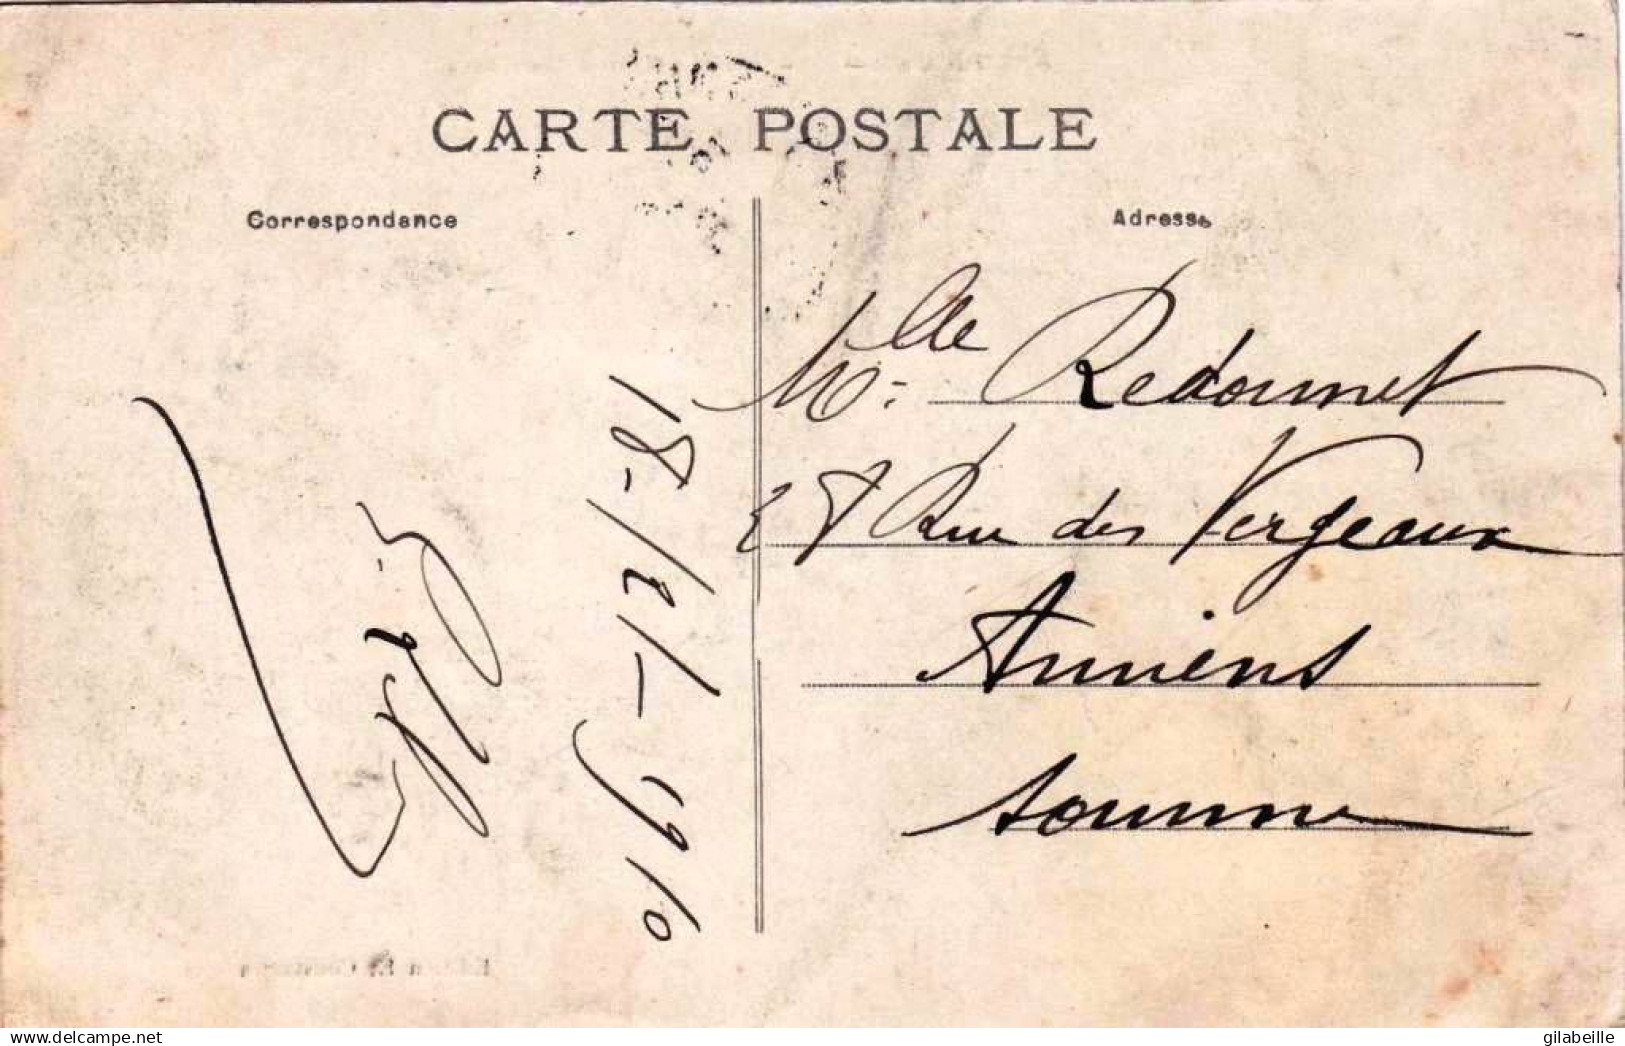 CARTE POSTALE
Correspondance
Adresse
18-/2/-1910
Mlle. Redonnet
28 Rue des Vergeaux
Amiens
Somme
www.delcampe.net
gilabeille